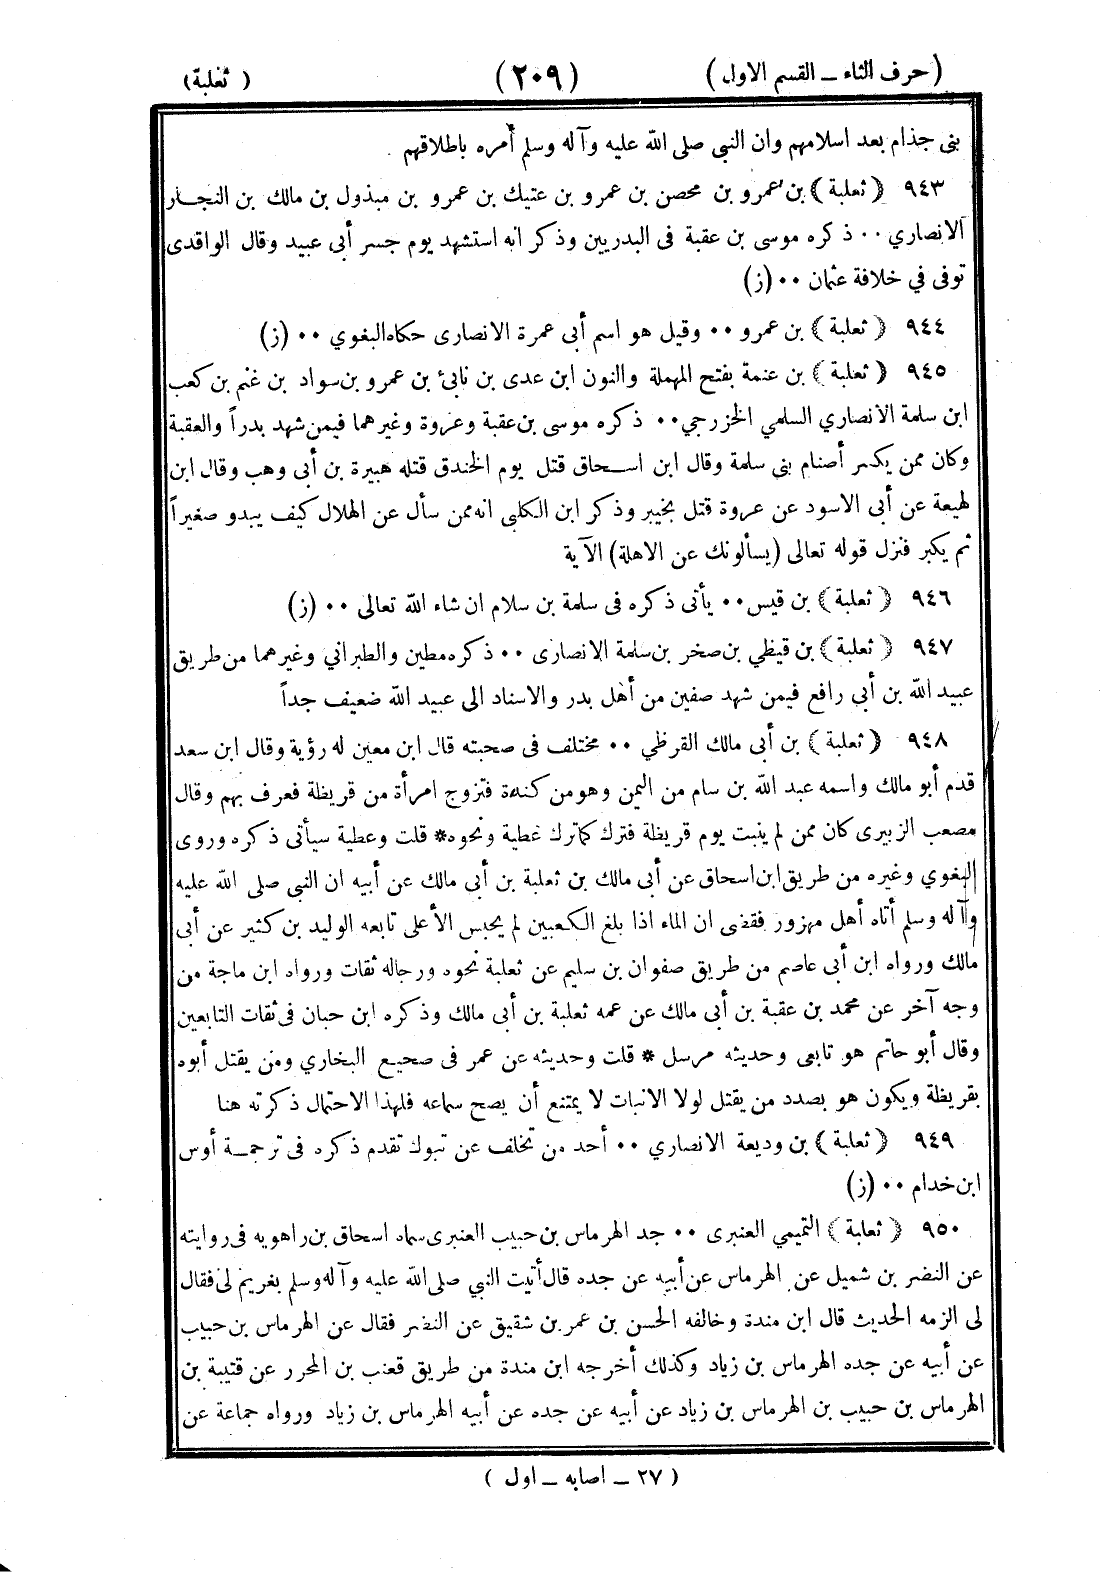 (حرف الثاء ــ القسم الاول)
(٢٠٩)
(ثعلبة)
بنى جذام بعد اسلامهم وان النبى صلى الله عليه وآله وسلم أمره باطلاقهم .
٩٤٣ ﴿ ثعلبة ﴾ بن عمرو بن محصن بن عمرو بن عتيك بن عمرو بن مبذول بن مالك بن النجار
الانصاري ٠٠ ذكره موسى بن عقبة فى البدريين وذكر انه استشهد يوم جسر أبى عبيد وقال الواقدى
توفى في خلافة عثمان ٠٠ (ز)
٩٤٤ ﴿ ثعلبة ﴾ بن عمرو ٠٠ وقيل هو اسم أبى عمرة الانصارى حكاه البغوي ٠٠ (ز)
٩٤٥ ﴿ ثعلبة ﴾ بن عنمة بفتح المهملة والنون ابن عدى بن نابئ بن عمرو بن سواد بن غنم بن كعب
ابن سلمة الانصاري السلمي الخزرجي ٠٠ ذكره موسى بن عقبة وعروة وغيرهما فيمن شهد بدراً والعقبة
وكان ممن يكسر أصنام بنى سلمة وقال ابن اسحاق قتل يوم الخندق قتله هبيرة بن أبى وهب وقال ابن
لهيعة عن أبى الاسود عن عروة قتل بخيبر وذكر ابن الكلبي انه ممن سأل عن الهلال كيف يبدو صغيراً
ثم يكبر فنزل قوله تعالى (يسألونك عن الاهلة) الآية
٩٤٦ ﴿ ثعلبة ﴾ بن قيس ٠٠ يأتى ذكره فى سلمة بن سلام ان شاء الله تعالى ٠٠ (ز)
٩٤٧ ﴿ ثعلبة ﴾ بن قيظي بن صخر بن سلمة الانصارى ٠٠ ذكره مطين والطبراني وغيرهما من طريق
عبيد الله بن أبى رافع فيمن شهد صفين من أهل بدر والاسناد الى عبيد الله ضعيف جداً
٩٤٨ ﴿ ثعلبة ﴾ بن أبى مالك القرظي ٠٠ مختلف فى صحبته قال ابن معين له رؤية وقال ابن سعد
قدم أبو مالك واسمه عبد الله بن سام من اليمن وهو من كندة فتزوج امرأة من قريظة فعرف بهم وقال
مصعب الزبيرى كان ممن لم ينبت يوم قريظة فترك كما ترك عطية ونحوه * قلت وعطية سيأتى ذكره وروى
البغوي وغيره من طريق ابن اسحاق عن أبى مالك بن ثعلبة بن أبى مالك عن أبيه ان النبي صلى الله عليه
وآله وسلم أتاه أهل مهزور فقضى ان الماء اذا بلغ الكعبين لم يحبس الأعلى تابعه الوليد بن كثير عن أبى
مالك ورواه ابن أبى عاصم من طريق صفوان بن سليم عن ثعلبة نحوه ورجاله ثقات ورواه ابن ماجة من
وجه آخر عن محمد بن عقبة بن أبى مالك عن عمه ثعلبة بن أبى مالك وذكره ابن حبان فى ثقات التابعين
وقال أبو حاتم هو تابعى وحديثه مرسل * قلت وحديثه عن عمر فى صحيح البخاري ومن يقتل أبوه
بقريظة ويكون هو بصدد من يقتل لولا الانبات لا يمتنع أن يصح سماعه فلهذا الاحتمال ذكرته هنا
٩٤٩ ﴿ ثعلبة ﴾ بن وديعة الانصاري ٠٠ أحد من تخلف عن تبوك تقدم ذكره فى ترجمة أوس
ابن خدام ٠٠ (ز)
٩٥٠ ﴿ ثعلبة ﴾ التميمي العنبرى ٠٠ جد الهرماس بن حبيب العنبرى سماه اسحاق بن راهويه فى روايته
عن النضر بن شميل عن الهرماس عن أبيه عن جده قال أتيت النبي صلى الله عليه وآله وسلم بغريم لى فقال
لى الزمه الحديث قال ابن مندة وخالفه الحسن بن عمر بن شقيق عن النضر فقال عن الهرماس بن حبيب
عن أبيه عن جده الهرماس بن زياد وكذلك أخرجه ابن مندة من طريق قعنب بن المحرر عن قتيبة بن
الهرماس بن حبيب بن الهرماس بن زياد عن أبيه عن جده عن أبيه الهرماس بن زياد ورواه جماعة عن
(٢٧ ــ اصابه ــ اول)